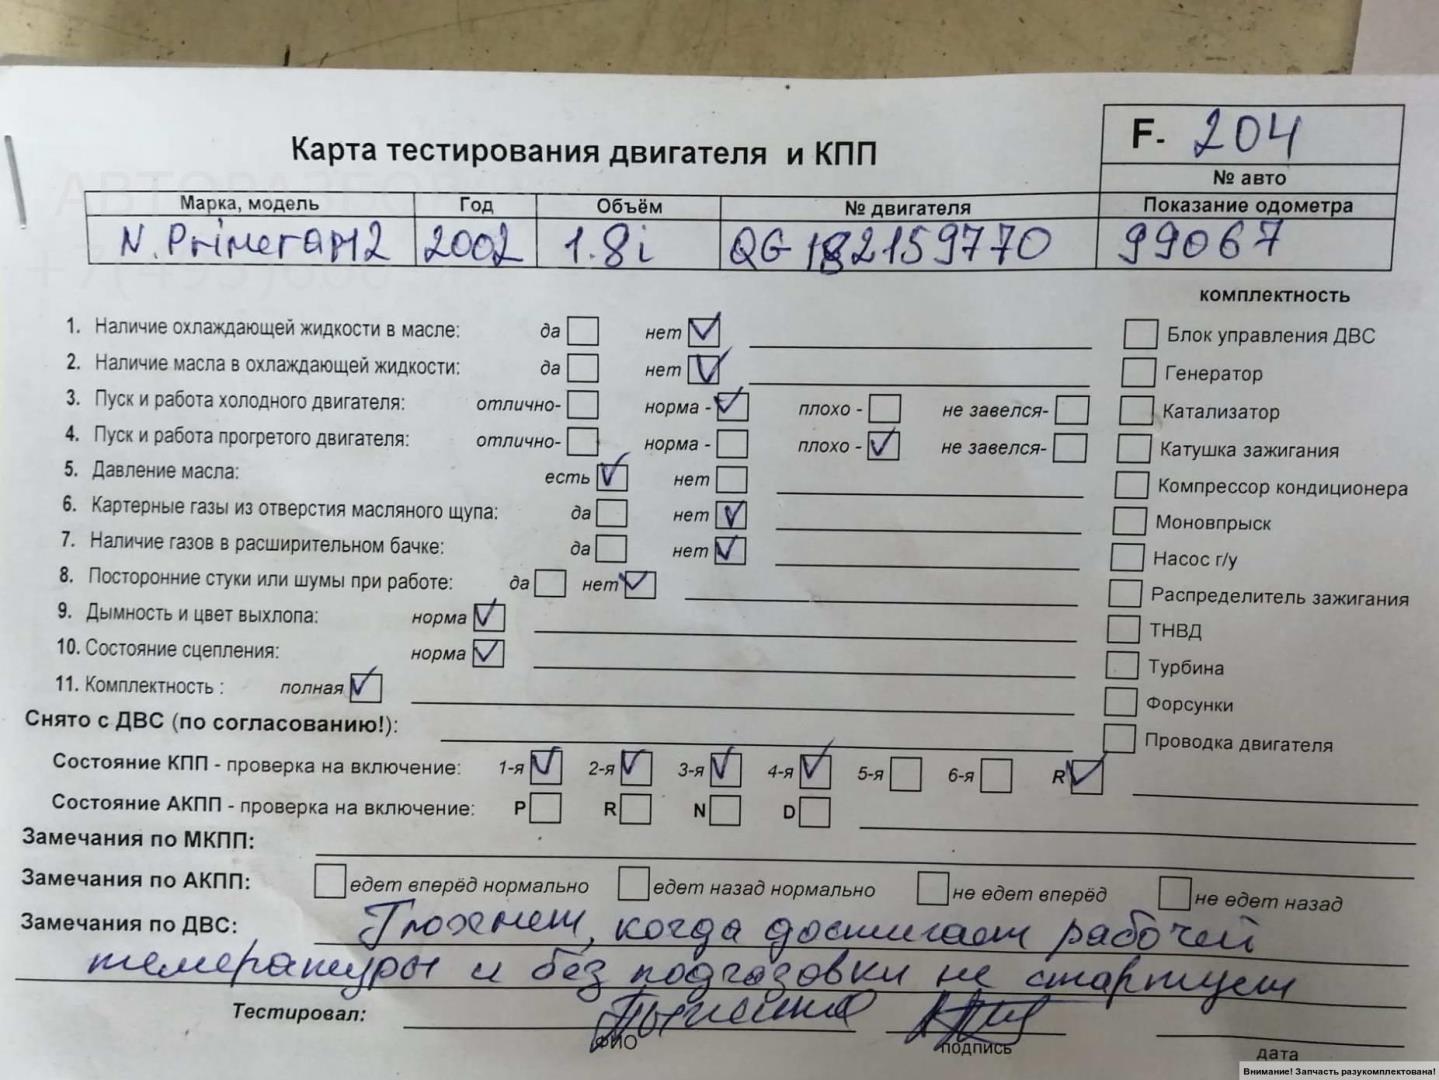 F- 204
Карта тестирования двигателя и КПП
№ авто
Марка, модель Год Объём № двигателя Показание одометра
N. Primera P12 2002 1.8i QG 182159770 99067
комплектность
1. Наличие охлаждающей жидкости в масле: да нет Блок управления ДВС
2. Наличие масла в охлаждающей жидкости: да нет Генератор
3. Пуск и работа холодного двигателя: отлично- норма - плохо - не завелся- Катализатор
4. Пуск и работа прогретого двигателя: отлично- норма - плохо - не завелся- Катушка зажигания
5. Давление масла: есть нет Компрессор кондиционера
6. Картерные газы из отверстия масляного щупа: да нет Моновпрыск
7. Наличие газов в расширительном бачке: да нет Насос г/у
8. Посторонние стуки или шумы при работе: да нет Распределитель зажигания
9. Дымность и цвет выхлопа: норма ТНВД
10. Состояние сцепления: норма Турбина
11. Комплектность : полная Форсунки
Снято с ДВС (по согласованию!): Проводка двигателя
Состояние КПП - проверка на включение: 1-я 2-я 3-я 4-я 5-я 6-я R
Состояние АКПП - проверка на включение: P R N D
Замечания по МКПП:
Замечания по АКПП: едет вперёд нормально едет назад нормально не едет вперёд не едет назад
Замечания по ДВС: Глохнет, когда достигает рабочей
темературы и без подгазовки не стартует
Тестировал:
ФИО подпись дата
Внимание! Запчасть разукомплектована!